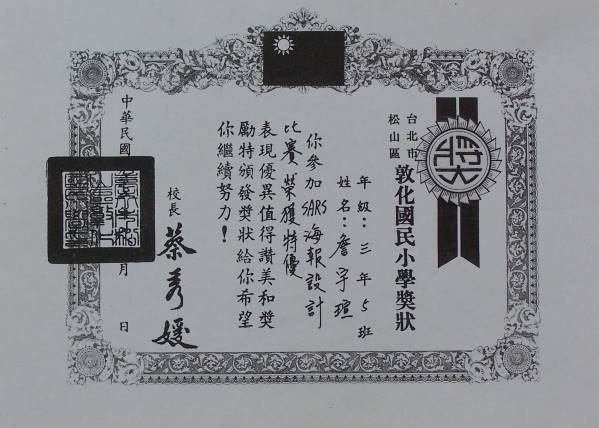 獎
台北市
松山區
敦化國民小學獎狀
年級：三年5班
姓名：詹宇瑄
你參加SARS海報設計
比賽榮獲特優
表現優異值得讚美和獎
勵特頒發獎狀給你希望
你繼續努力！
校長 蔡秀媛
中華民國 月 日